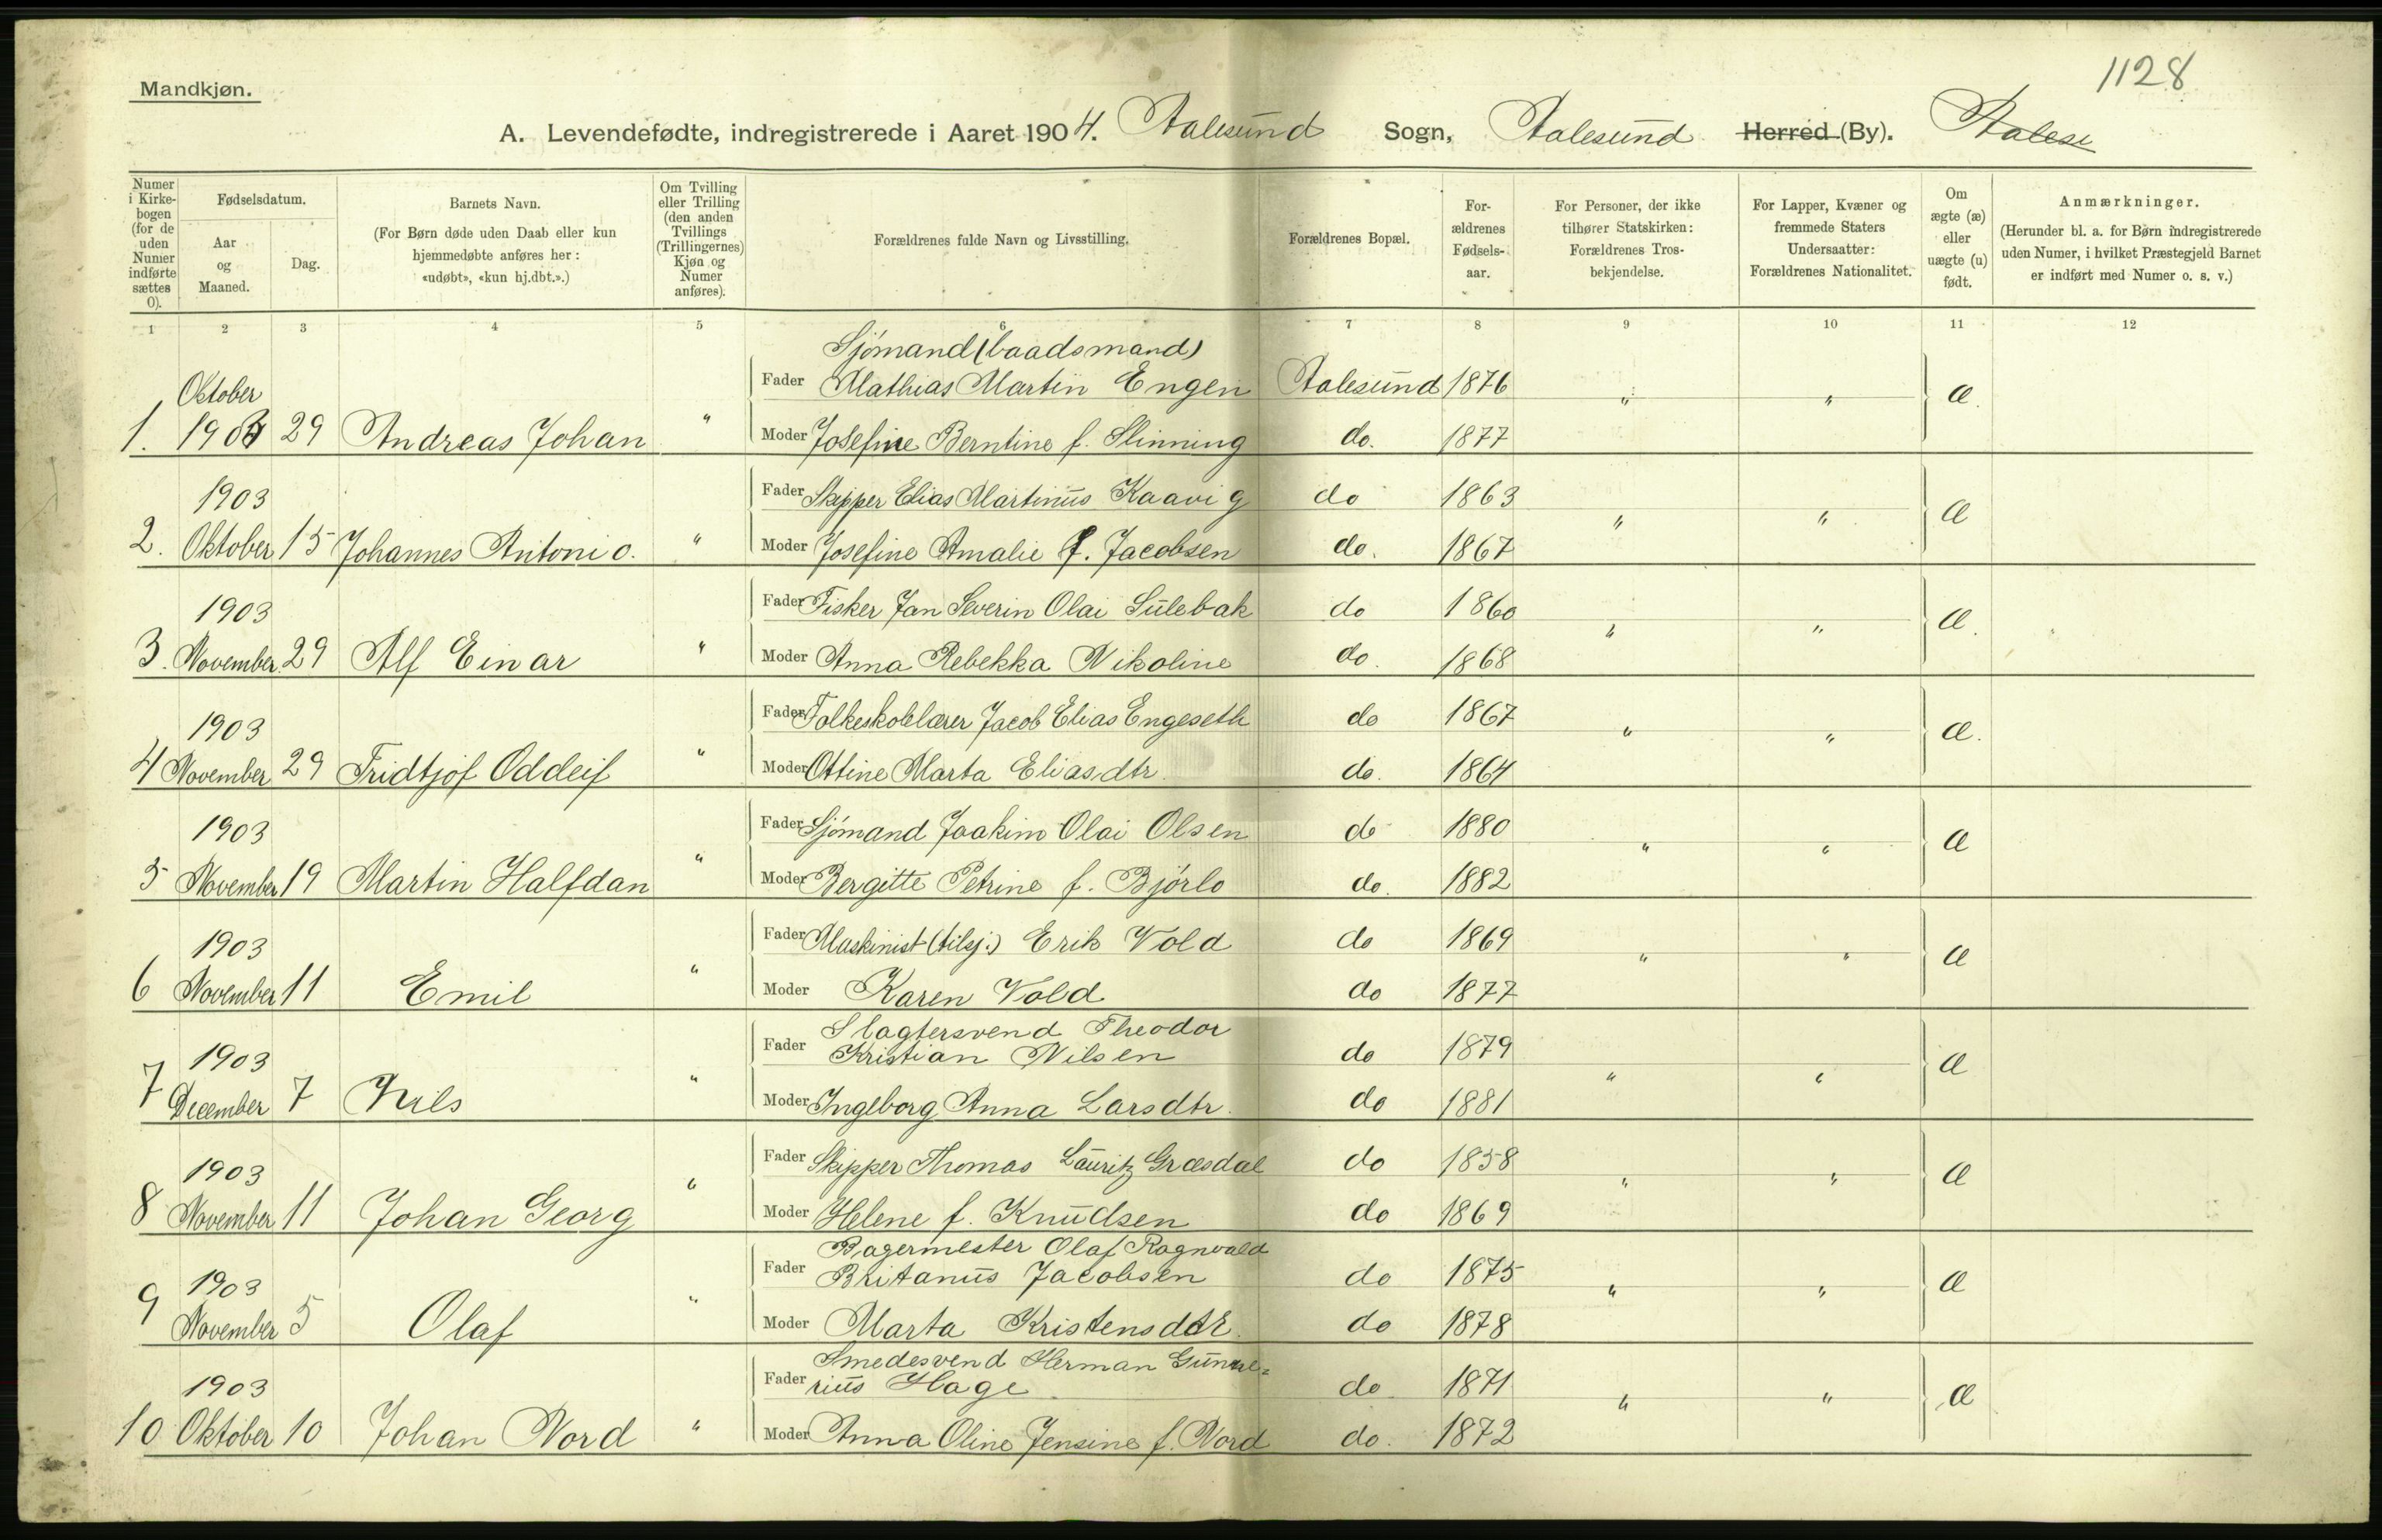 1128
Mandkjøn.
A. Levendefødte, indregistrerede i Aaret 1904. Aalesund Sogn, Aalesund Herred (By). Aalesu
Numer i Kirkebogen (for de uden Numer indførte sættes 0).
Fødselsdatum.
Aar og Maaned.
Dag.
Barnets Navn.
(For Børn døde uden Daab eller kun hjemmedøbte anføres her: «udøbt», «kun hj.dbt.».)
Om Tvilling eller Trilling (den anden Tvillings (Trillingernes) Kjøn og Numer anføres).
Forældrenes fulde Navn og Livsstilling.
Forældrenes Bopæl.
Forældrenes Fødselsaar.
For Personer, der ikke tilhører Statskirken: Forældrenes Trosbekjendelse.
For Lapper, Kvæner og fremmede Staters Undersaatter: Forældrenes Nationalitet.
Om ægte (æ) eller uægte (u) født.
Anmærkninger.
(Herunder bl. a. for Børn indregistrerede uden Numer, i hvilket Præstegjeld Barnet er indført med Numer o. s. v.)
1 2 3 4 5 6 7 8 9 10 11 12
Sjömand (baadsmand)
Oktober Fader Mathias Martin Engen Aalesund 1876 " " æ.
1. 1903 29 Andreas Johan " Moder Josefine Berntine f. Slinning do. 1877
1903 Fader Skipper Elias Martinus Kaavig do 1863 " " æ
2. Oktober 15 Johannes Antonio. " Moder Josefine Amalie f. Jacobsen do. 1867
1903 Fader Fisker Jan Severin Olai Sulebak do 1860 " " æ.
3. November 29 Alf Einar " Moder Anna Rebekka Nikoline do. 1868
1903 Fader Folkeskolelærer Jacob Elias Engeseth do 1867 " " æ.
4 November 29 Fridtjof Oddleif " Moder Ottine Marta Eliasdtr. do. 1864
1903 Fader Sjömand Joakim Olai Olsen do 1880 " " æ
5 November 19 Martin Halfdan " Moder Bergitte Petrine f. Björlo do. 1882
1903 Fader Maskinist (tilsj.) Erik Vold do 1869 " " æ
6 November 11 Emil " Moder Karen Vold do 1877
Slagtersvend Theodor
1903 Fader Kristian Nilsen do 1879 " " æ
7 December 7 Nils " Moder Ingeborg Anna Larsdtr. do 1881
1903 Fader Skipper Thomas Lauritz Græsdal do 1858 " " æ
8 November 11 Johan Georg " Moder Helene f. Knudsen do 1869
Bagermester Olaf Ragnvald
1903 Fader Britanus Jacobsen do 1875 " " æ
9 November 5 Olaf " Moder Marta Kristensdtr. do 1878
Smedesvend Herman Gunne=
1903 Fader rius Hage do 1871 " " æ
10 Oktober 10 Johan Nord " Moder Anna Oline Jensine f. Nord do. 1872